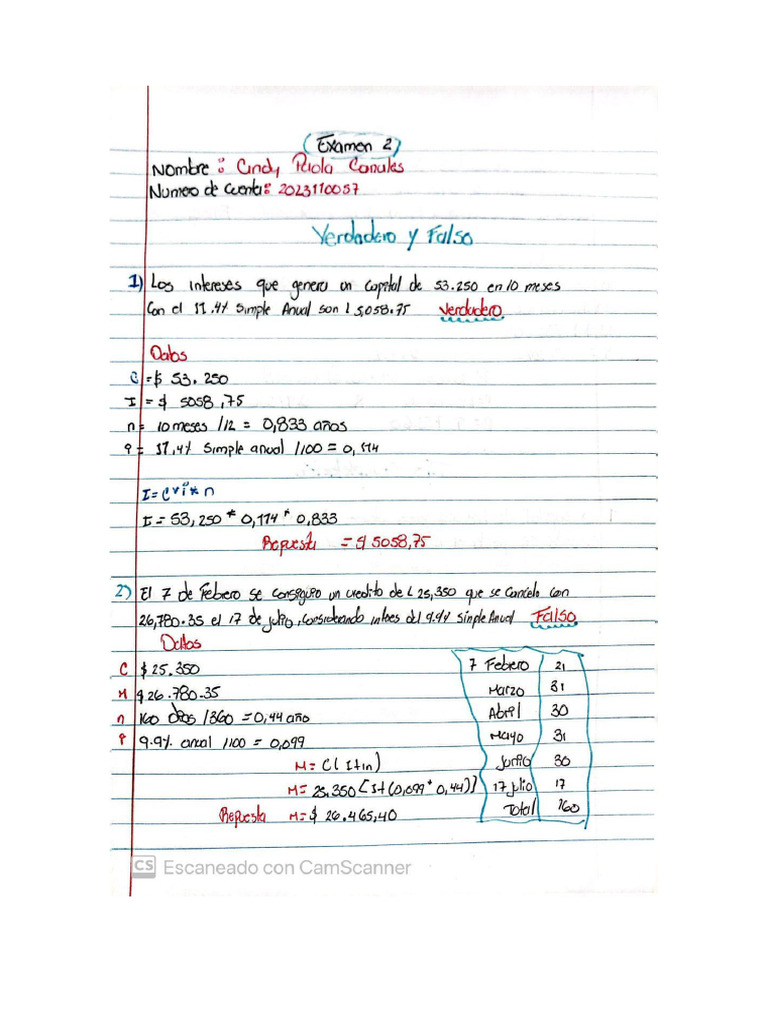 Examen 2
Nombre: Cindy Paola Canales
Numero de Cuenta: 2023110057
Verdadero y Falso
1) Los intereses que genera un Capital de 53.250 en 10 meses
Con el 11.4% Simple Anual son L 5,058.75 Verdadero
Datos
C = $ 53.250
I = $ 5058,75
n = 10 meses /12 = 0,833 años
i = 11.4% Simple anual /100 = 0,114
I = C * i * n
I = 53,250 * 0,114 * 0,833
Repuesta = $ 5058,75
2) El 7 de Febrero se consiguio un credito de L 25,350 que se Cancelo con
26,780.35 el 17 de julio, Considerando intres del 9.9% Simple Anual Falso
Datos
C $ 25.350
M $ 26.780.35
n 160 dias /360 = 0,44 año
i 9.9% anual /100 = 0,099
M = C(1+in)
M = 25.350 [1+(0,099 * 0,44)]
Repuesta M = $ 26.465,40
7 Febrero 21
Marzo 31
Abril 30
Mayo 31
Junio 30
17 julio 17
Total 160
CS Escaneado con CamScanner